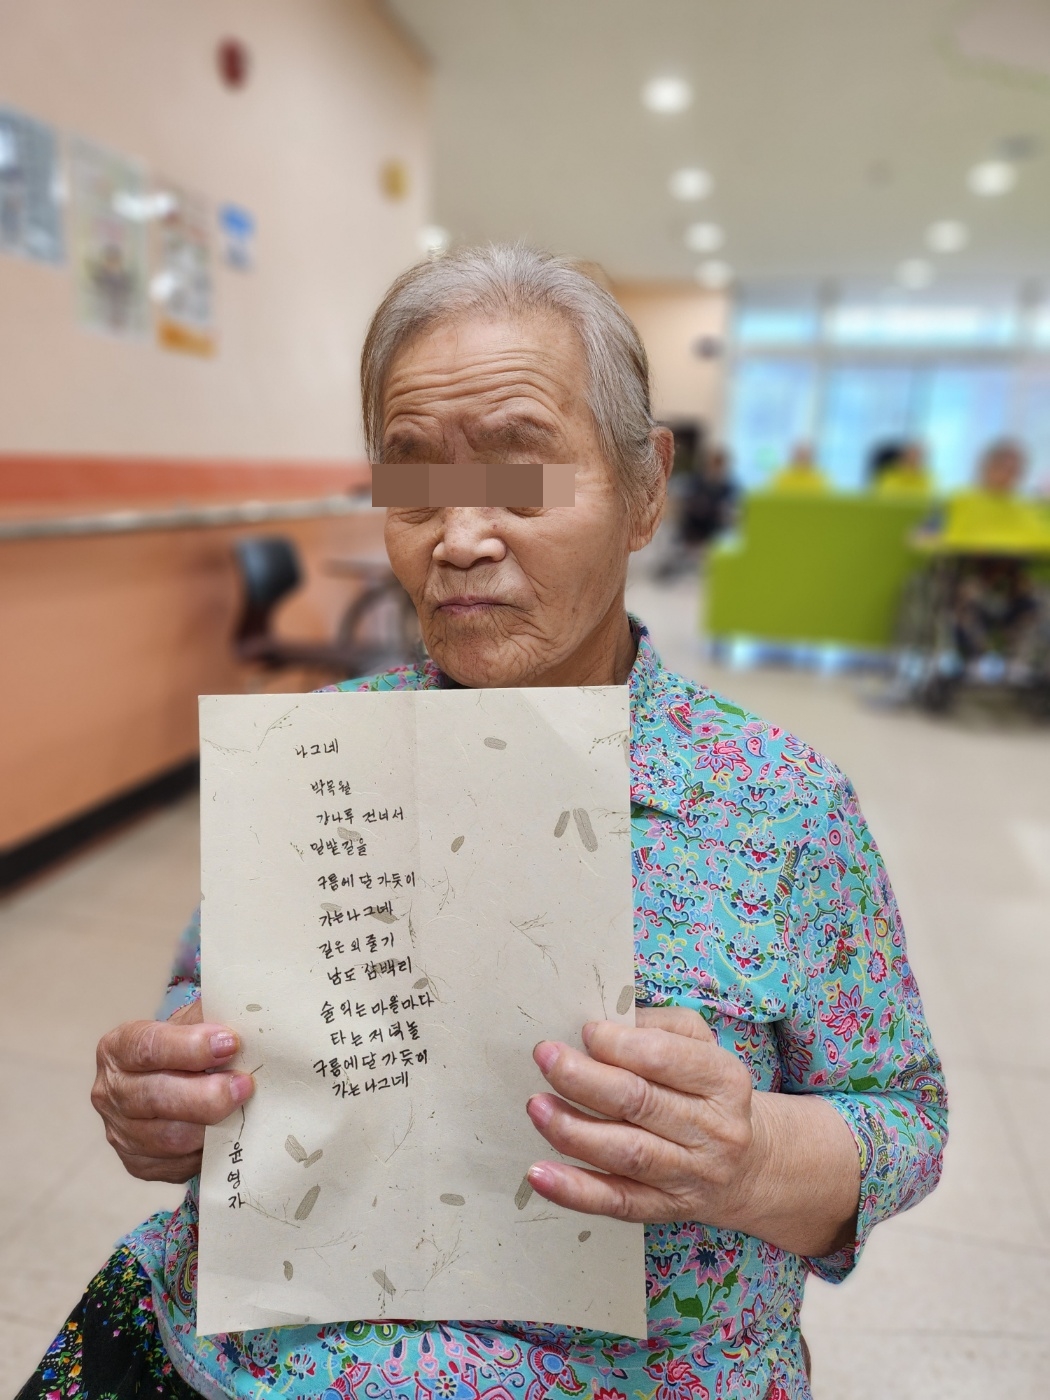 나그네
박목월
강나루 건너서
밀밭길을
구름에 달 가듯이
가는 나그네
길은 외줄기
남도 삼백리
술 익는 마을마다
타는 저녁놀
구름에 달 가듯이
가는 나그네
윤영자